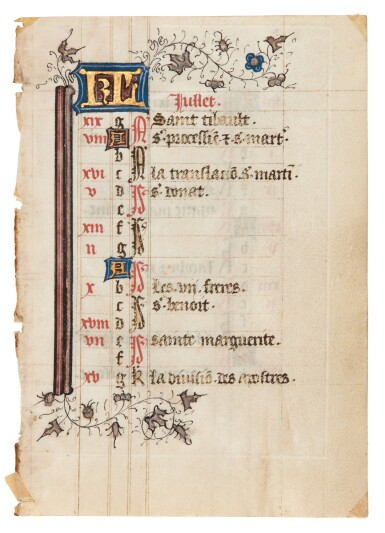 KL
Jullet.
xix g N Saint tibault.
viii A s. processie & s. mart
b N
xvi c la translatiō s. marti
v d s. donat.
e
xiii f
ii g
A
x b Les vii freres.
c s. benoit.
xviii d
vii e sainte marguerite.
f
xv g K la divisiō des apostres.